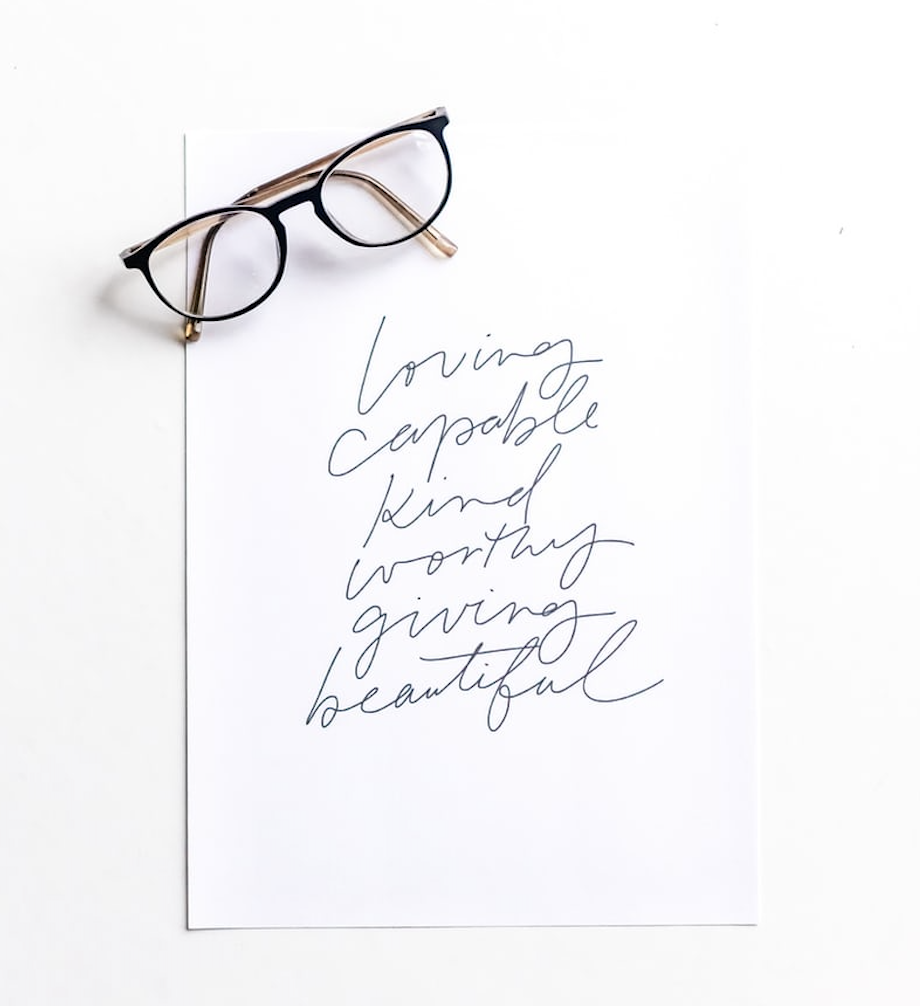 loving
capable
kind
worthy
giving
beautiful